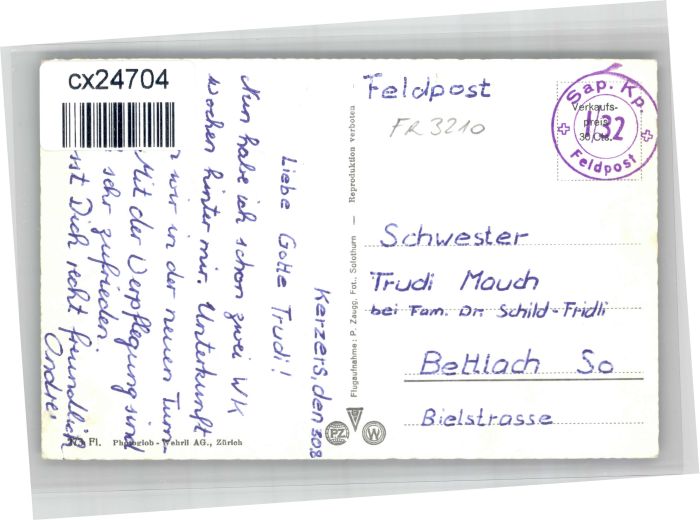 cx24704
Kerzers, den 30.8
Liebe Gotte Trudi!
Nun habe ich schon zwei WK
wochen hinter mir. Unterkunft
wir in der neuen Turn-
Mit der Verpflegung sind
sehr zufrieden.
Dich recht freundlich
André
Fl. Photoglob-Wehrli AG., Zürich
Flugaufnahme: P. Zaugg, Fot., Solothurn — Reproduktion verboten
PZ
W
Feldpost
FR 3210
Sap. Kp.
Verkaufs-
preis
30 Cts.
1/32
Feldpost
Schwester
Trudi Mauch
bei Fam. Dr. Schild-Fridli
Bettlach So
Bielstrasse